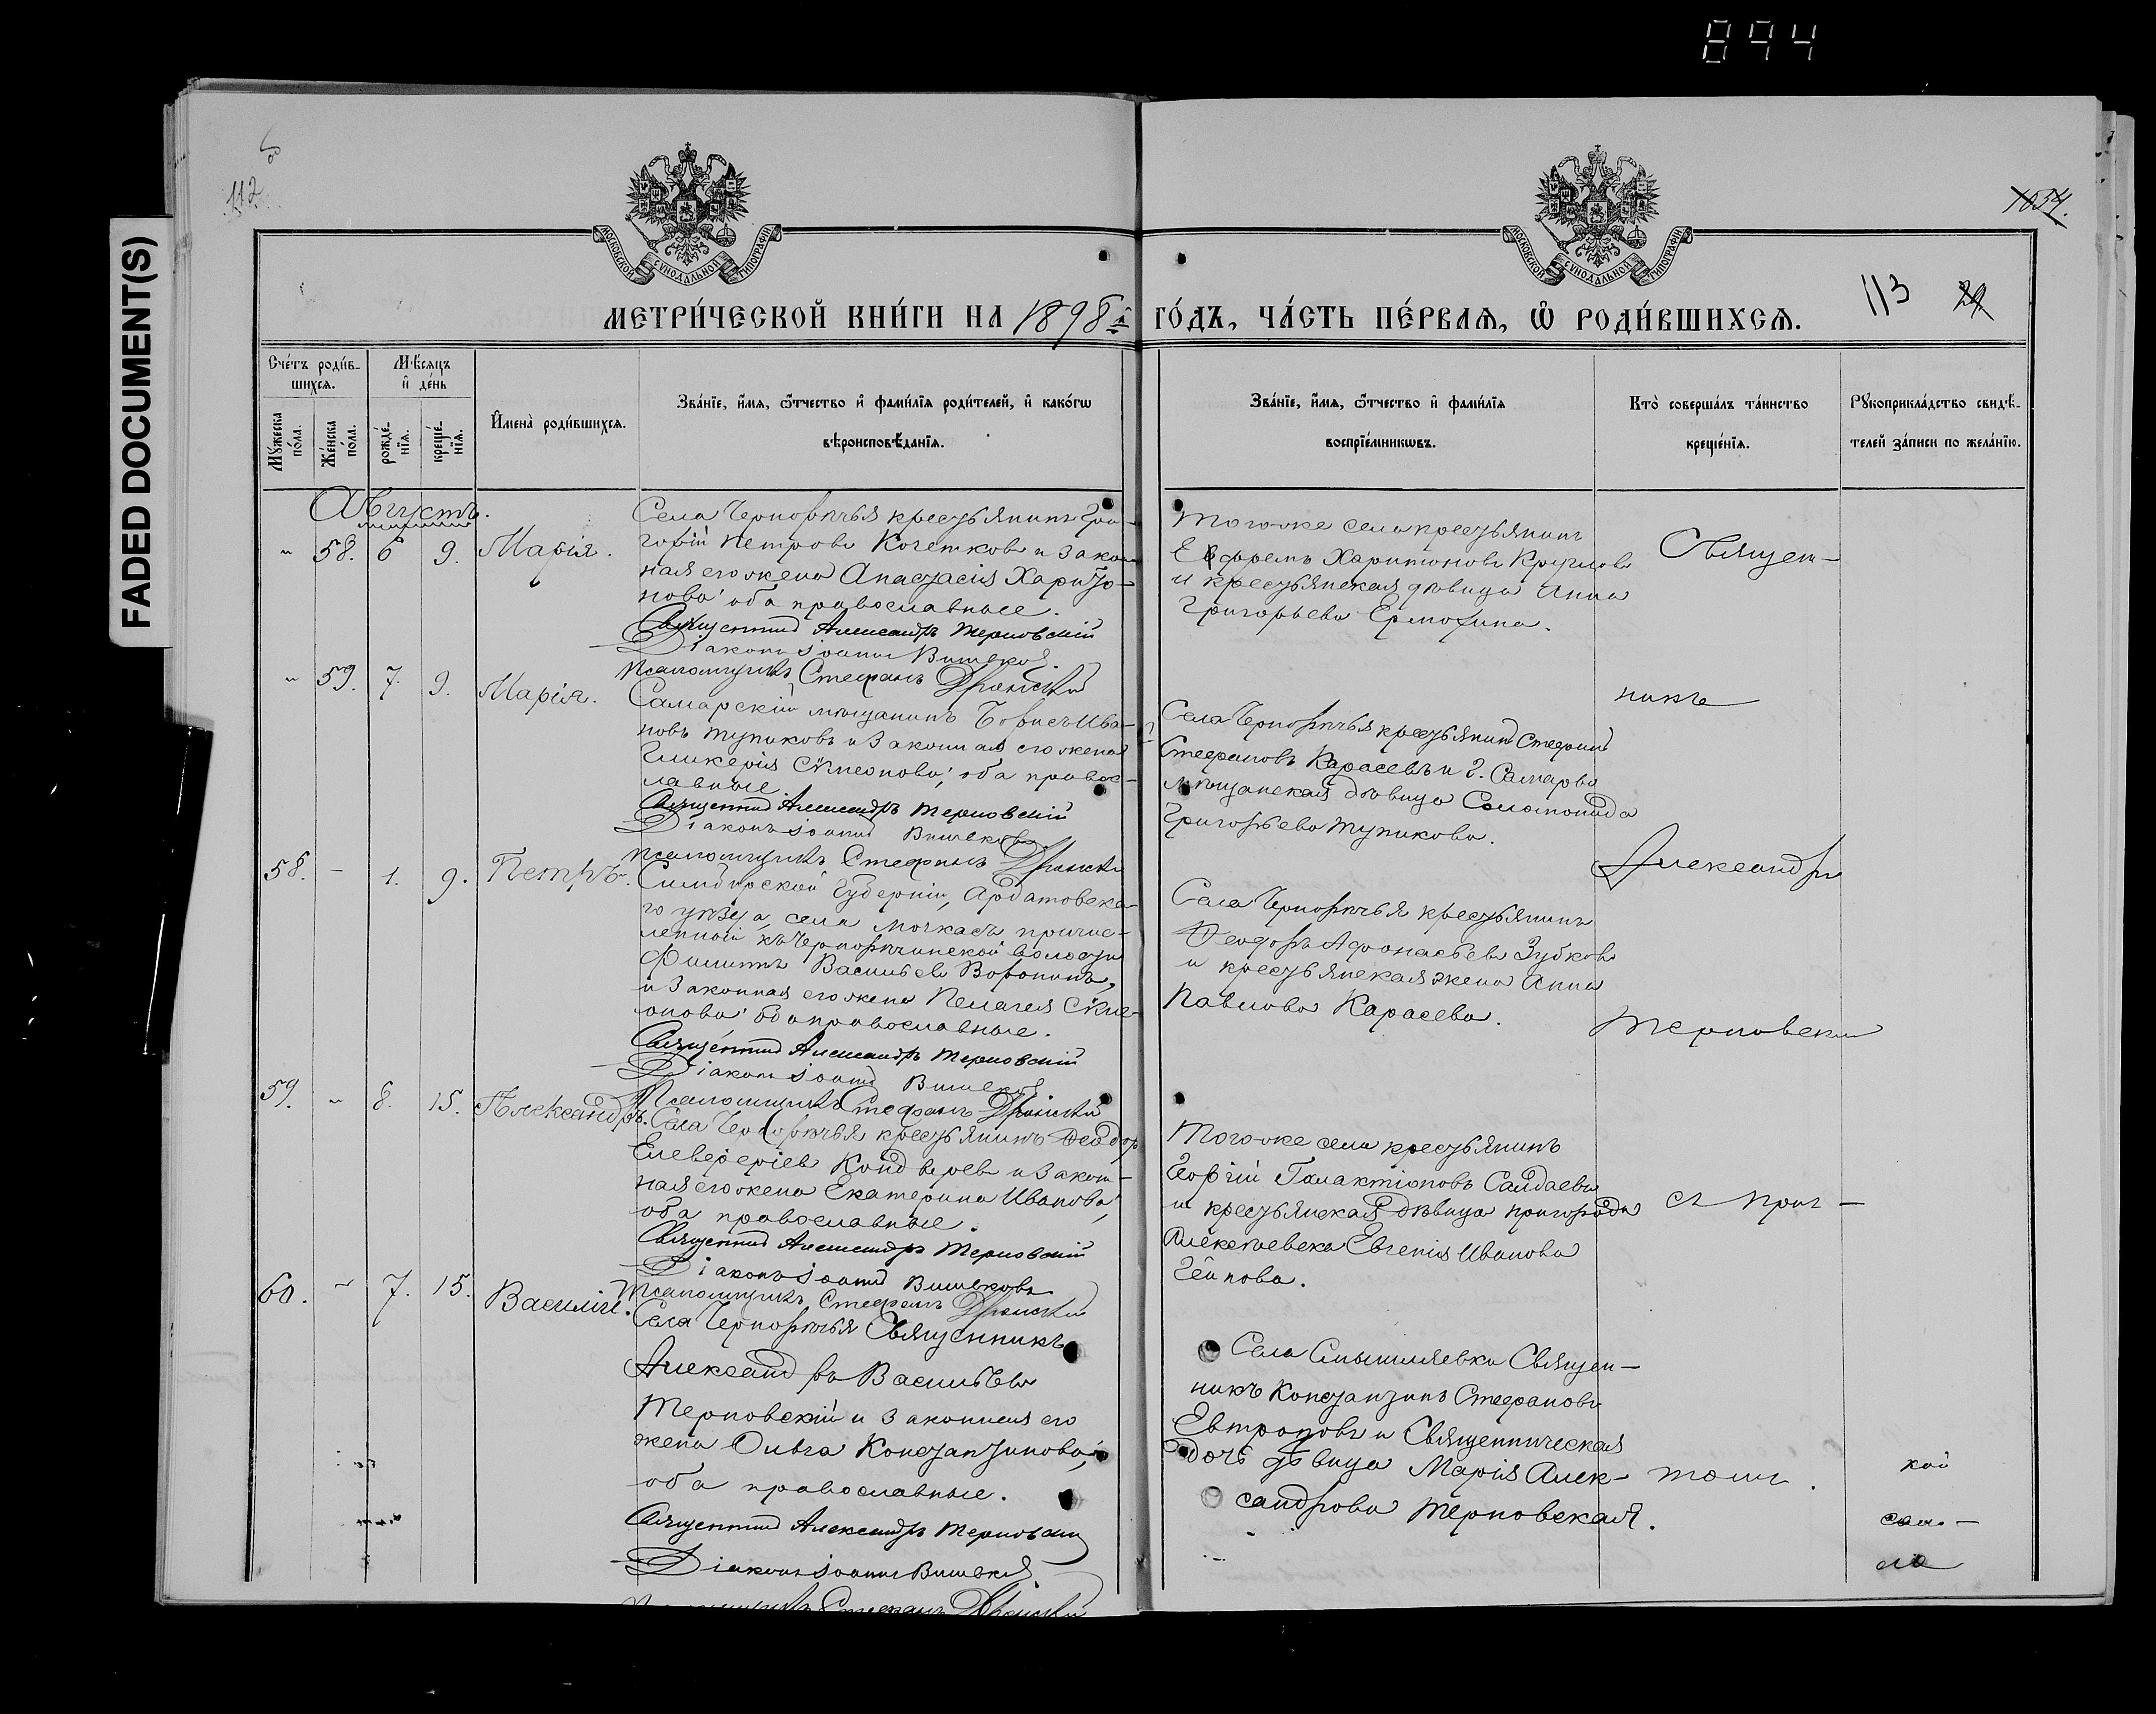 894
FADED DOCUMENT(S)
112
1034.
МОСКОВСКОЙ СѴНОДАЛЬНОЙ ТИПОГРАФІИ
МОСКОВСКОЙ СѴНОДАЛЬНОЙ ТИПОГРАФІИ
113 29
МЕТРИ́ЧЕСКОЙ КНИ́ГИ НА 1898 й ГО́ДЪ, ЧА́СТЬ ПЕ́РВАЯ, Ѽ РОДИ́ВШИХСЯ.
Сче́тъ роди́в-
шихся.
Мѣ́сяцъ
и҆ де́нь
Мꙋ́жеска по́ла.
Же́нска по́ла.
рожде́-
нїя.
креще́-
нїя.
И҆мена̀ роди́вшихся.
Зва́нїе, и҆́мя, ѻ҆́тчество и҆ фами́лїя роди́телей, и҆ како́гѡ
вѣроисповѣ́данїя.
Зва́нїе, и҆́мя, ѻ҆́тчество и҆ фами́лїя
воспрїе́мникѡвъ.
Кто̀ соверша́лъ та́инство
креще́нїя.
Рꙋкоприкла́дство свидѣ́-
телей за́писи по жела́нїю.
Августъ.
" 58. 6 9. Марія.
Села Чернорѣчья крестьянинъ Гри-
горій Петровъ Кочетковъ и закон-
ная его жена Анастасія Харито-
нова; оба православные.
Священникъ Александръ Терновскій
Діаконъ Іоаннъ
Псаломщикъ Стефанъ
Того-же села крестьянинъ
Ефремъ Харитоновъ Кругловъ
и крестьянская дѣвица Анна
Григорьева Ермохина.
Священ-
" 59. 7. 9. Марія.
Самарскій мѣщанинъ Борисъ Ива-
новъ Тупиковъ и законная его жена
Гликерія Сѵмеонова; оба правос-
лавные
Священникъ Александръ Терновскій
Діаконъ Іоаннъ
Псаломщикъ Стефанъ
Села Чернорѣчья крестьянинъ Стефанъ
Стефановъ Карасевъ и г. Самары
мѣщанская дѣвица Соломонида
Григорьева Тупикова.
никъ
58. - 1. 9. Петръ.
Симбирской Губерніи, Ардатовска-
го уѣзда, села Мочкасъ причис-
ленный къ Чернорѣчинской волости
Филиппъ Васильевъ Воронинъ,
и законная его жена Пелагея Сѵме-
онова; оба православные.
Священникъ Александръ Терновскій
Діаконъ Іоаннъ
Псаломщикъ Стефанъ
Села Чернорѣчья крестьянинъ
Ѳеодоръ Афонасьевъ Зубковъ
и крестьянская жена Анна
Павлова Карасева.
Александръ
Терновскій
59. " 8. 15. Александръ.
Села Чернорѣчья крестьянинъ Ѳеодоръ
Елевѳеріевъ и закон-
ная его жена Екатерина Иванова;
оба православные.
Священникъ Александръ Терновскій
Діаконъ Іоаннъ
Псаломщикъ Стефанъ
Того-же села крестьянинъ
Георгій Галактіоновъ Салдаевъ
и крестьянская дѣвица пригорода
Алексѣевска Евгенія Иванова
съ прич-
60. " 7. 15. Василій.
Села Чернорѣчья Священникъ
Александръ Васильевъ
Терновскій и законная его
жена Ольга Константинова;
оба православные.
Священникъ Александръ Терновскій
Діаконъ Іоаннъ
Псаломщикъ Стефанъ
Села Смышляевки Священ-
никъ Константинъ Стефановъ
Евтроповъ и Священническая
дочь дѣвица Марія Алек-
сандрова Терновская.
томъ.